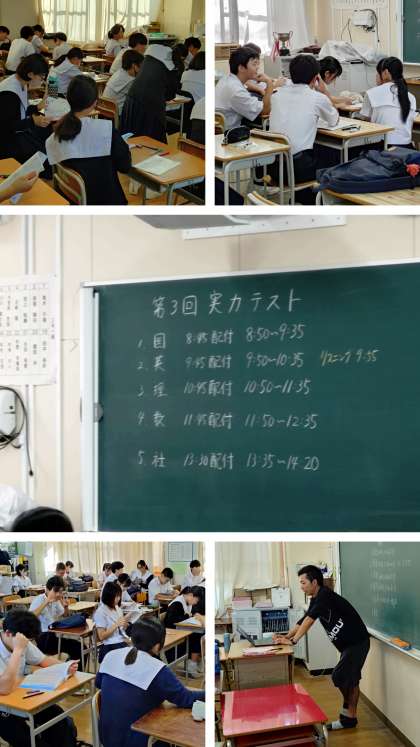 第3回 実力テスト
1. 国 8:45配付 8:50~9:35
2. 英 9:45配付 9:50~10:35 リスニング 9:55
3. 理 10:45配付 10:50~11:35
4. 数 11:45配付 11:50~12:35
5. 社 13:30配付 13:35~14:20